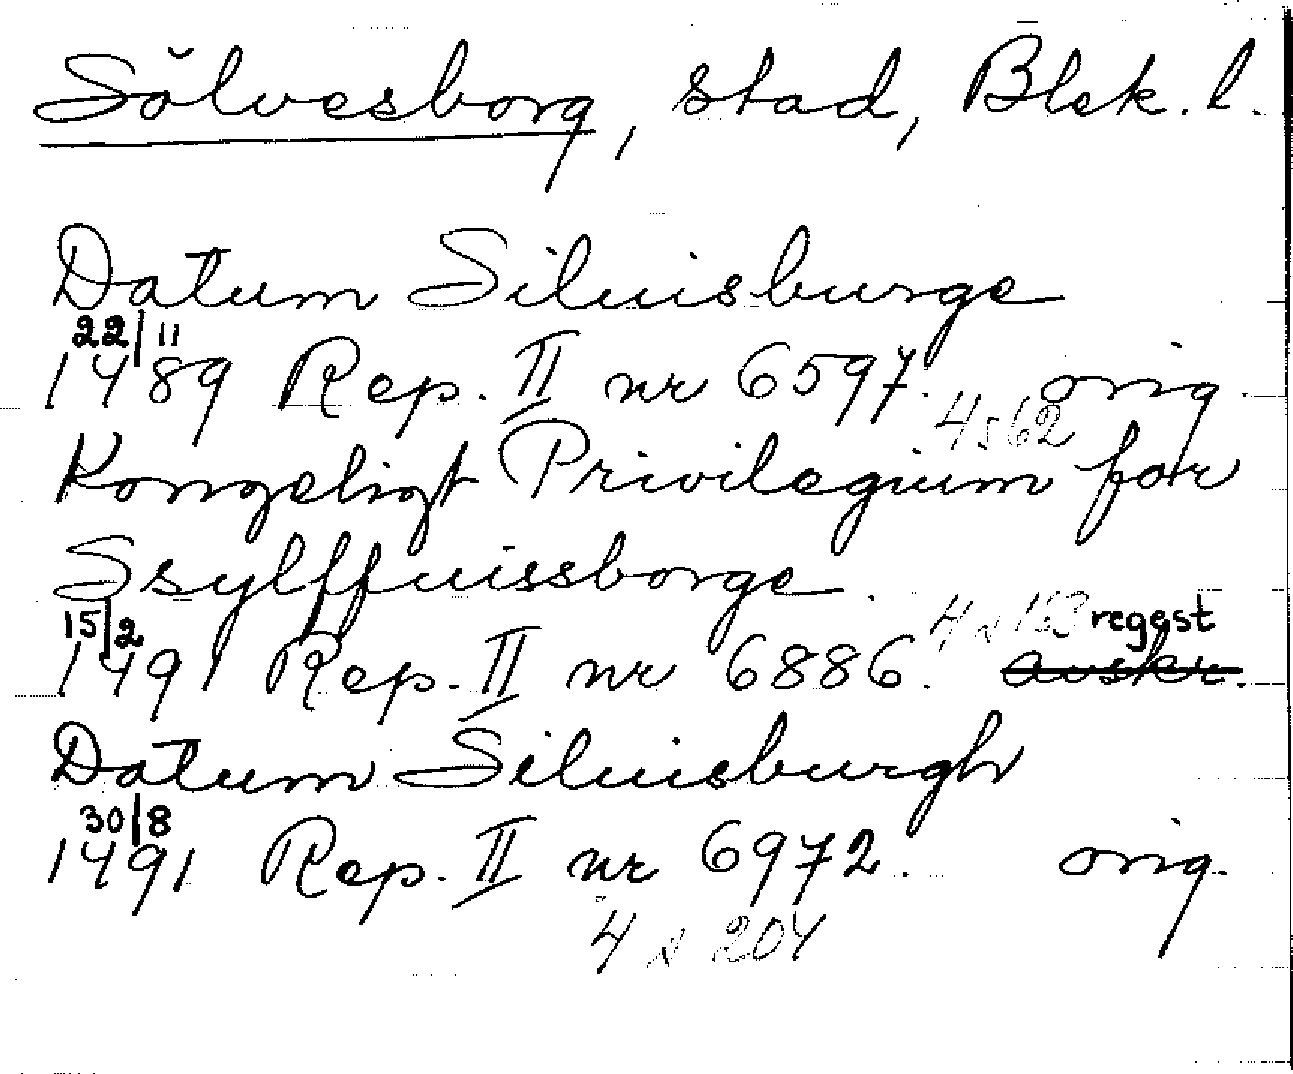 Sölvesborg, stad, Blek. l.
Datum Siluisburge
22/11
1489 Rep. II nr 6597. orig.
4 s 62
Kongeligt Privilegium for
Ssylffuissborge.
15/2
4 s 153 regest
1491 Rep. II nr 6886. avskr.
Datum Siluisburgh
30/8
1491 Rep. II nr 6972. orig.
4 s 204